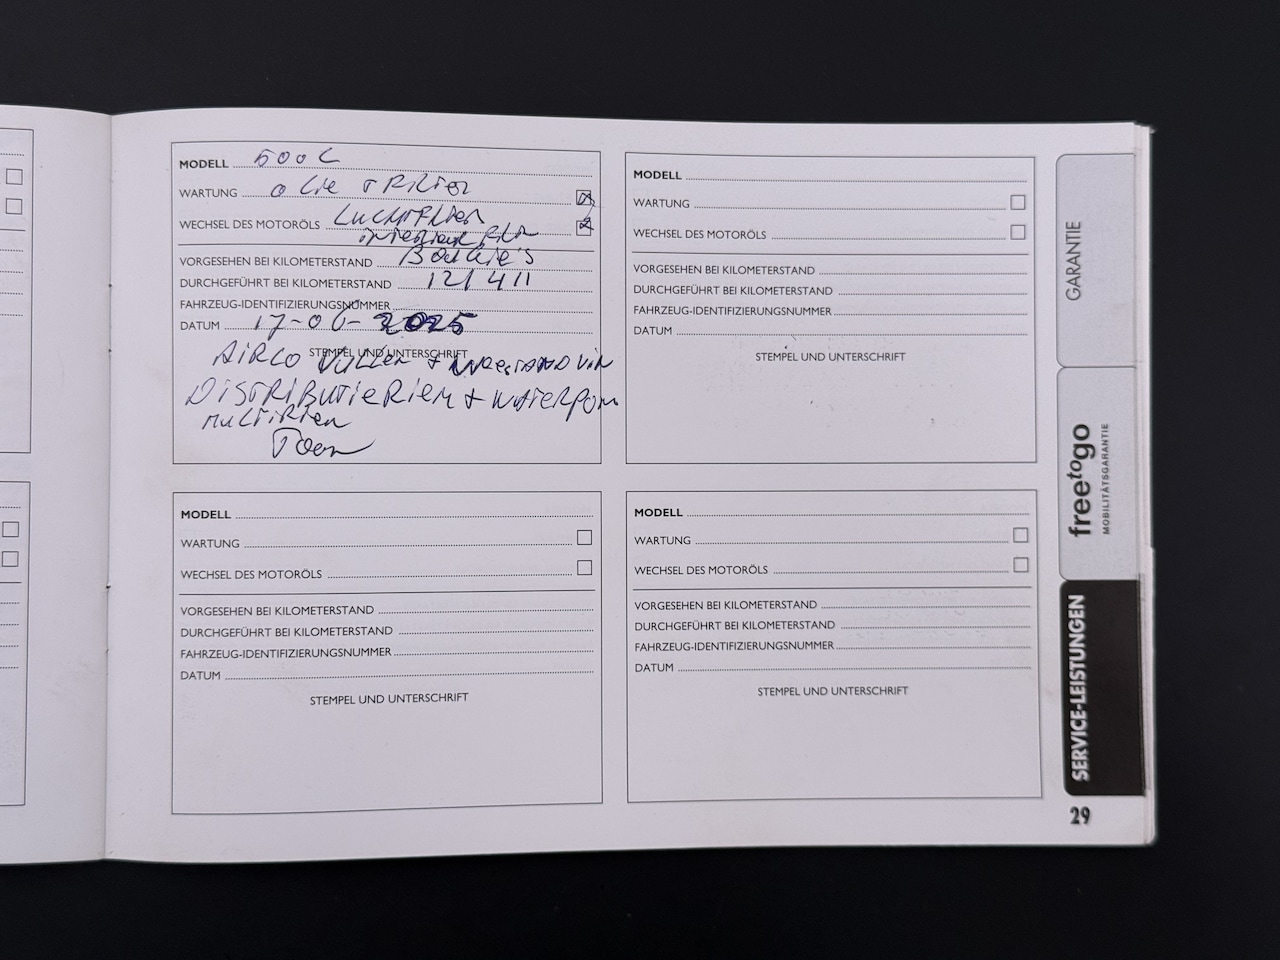 MODELL 500C
WARTUNG olie + Filter
WECHSEL DES MOTORÖLS Luchtfilter
interieur Filter
VORGESEHEN BEI KILOMETERSTAND Bougie's
DURCHGEFÜHRT BEI KILOMETERSTAND 121411
FAHRZEUG-IDENTIFIZIERUNGSNUMMER
DATUM 17-06-2025
STEMPEL UND UNTERSCHRIFT
AIRCO VULLEN +
DISTRIBUTIERIEM + WATERPOM
MULTIRIEM
MODELL
WARTUNG
WECHSEL DES MOTORÖLS
VORGESEHEN BEI KILOMETERSTAND
DURCHGEFÜHRT BEI KILOMETERSTAND
FAHRZEUG-IDENTIFIZIERUNGSNUMMER
DATUM
STEMPEL UND UNTERSCHRIFT
MODELL
WARTUNG
WECHSEL DES MOTORÖLS
VORGESEHEN BEI KILOMETERSTAND
DURCHGEFÜHRT BEI KILOMETERSTAND
FAHRZEUG-IDENTIFIZIERUNGSNUMMER
DATUM
STEMPEL UND UNTERSCHRIFT
MODELL
WARTUNG
WECHSEL DES MOTORÖLS
VORGESEHEN BEI KILOMETERSTAND
DURCHGEFÜHRT BEI KILOMETERSTAND
FAHRZEUG-IDENTIFIZIERUNGSNUMMER
DATUM
STEMPEL UND UNTERSCHRIFT
GARANTIE
freetogo
MOBILITÄTSGARANTIE
SERVICE-LEISTUNGEN
29